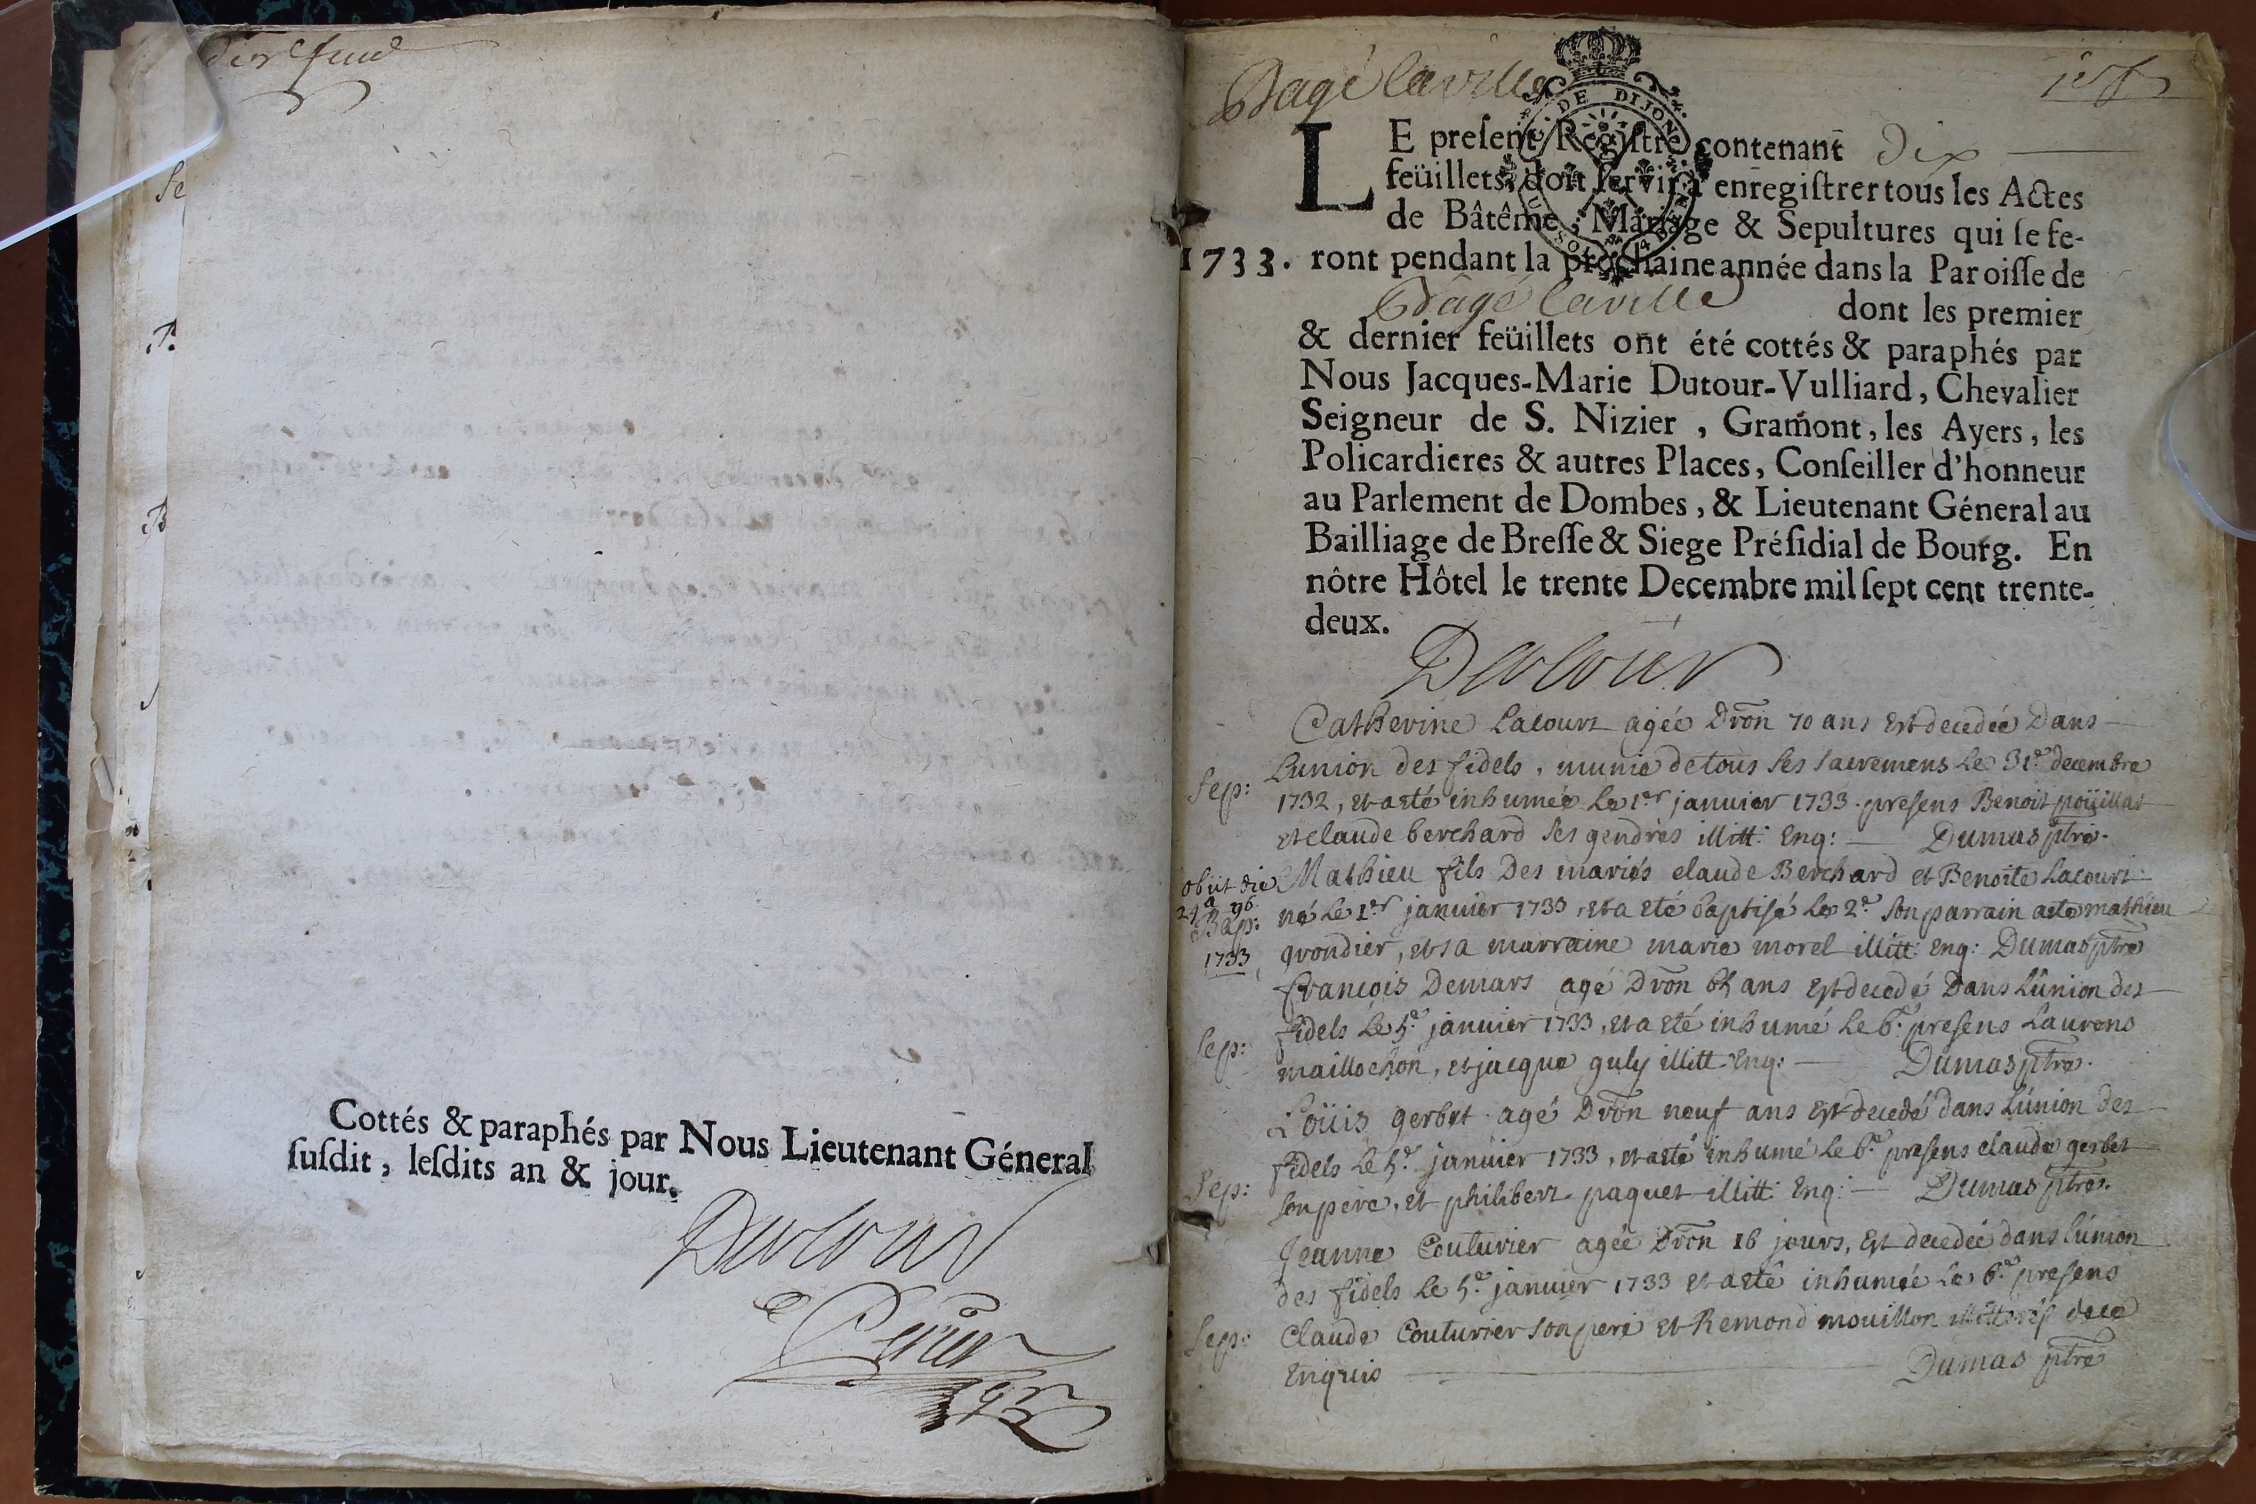 Se
B.
B
Cottés & paraphés par Nous Lieutenant Géneral
ſuſdit, leſdits an & jour.
Dutour
Bâgé la ville
DE DIJON
LE preſent Regiſtre contenant dix
feüillets, doit ſervir à enregiſtrer tous les Actes
de Bâtême, Mariage & Sepultures qui ſe fe-
1733. ront pendant la prochaine année dans la Paroiſſe de
Bâgé la ville dont les premier
& dernier feüillets ont été cottés & paraphés par
Nous Jacques-Marie Dutour-Vulliard, Chevalier
Seigneur de S. Nizier, Gramont, les Ayers, les
Policardieres & autres Places, Conſeiller d'honneur
au Parlement de Dombes, & Lieutenant Géneral au
Bailliage de Breſſe & Siege Préſidial de Bourg. En
nôtre Hôtel le trente Decembre mil ſept cent trente-
deux.
Dutour
Catherine Lacourt agée Dron 70 ans Est decedée Dans
L'union des fidels, munie de tous ses sacremens Le 31e decembre
Sep: 1732, et a eté inhumée Le 1er janvier 1733. presens Benoit poüillat
et claude berchard ses gendres illitt: Enq: Dumas ptre.
obiit die Mathieu fils Des mariés claude Berchard et Benoite Lacourt
24a 9b
Bap: né Le 1er janvier 1733, et a eté baptisé Le 2e son parrain a eté mathieu
1733 grondier, et sa marraine marie morel illitt: Enq: Dumas ptre
françois Demars agé Dron 65 ans Est decedé Dans L'union des
Sep: fidels Le 5e janvier 1733, et a eté inhumé Le 6e. presens Laurens
maillochon, et jacque guly illitt: Enq: Dumas ptre.
Loüis gerbet agé Dron neuf ans Est decedé dans L'union des
fidels Le 5e. janvier 1733, et a eté inhumé Le 6e. presens claude gerbet
Sep: son pere, et philibert paquet illitt: Enq: Dumas ptre.
Jeanne Couturier agée Dron 16 jours, Est decedée dans L'union
des fidels Le 5e. janvier 1733 et a eté inhumée Le 6e. presens
Sep: Claude Couturier son pere et Remond mouillon illitterés de ce
Enquis Dumas ptre